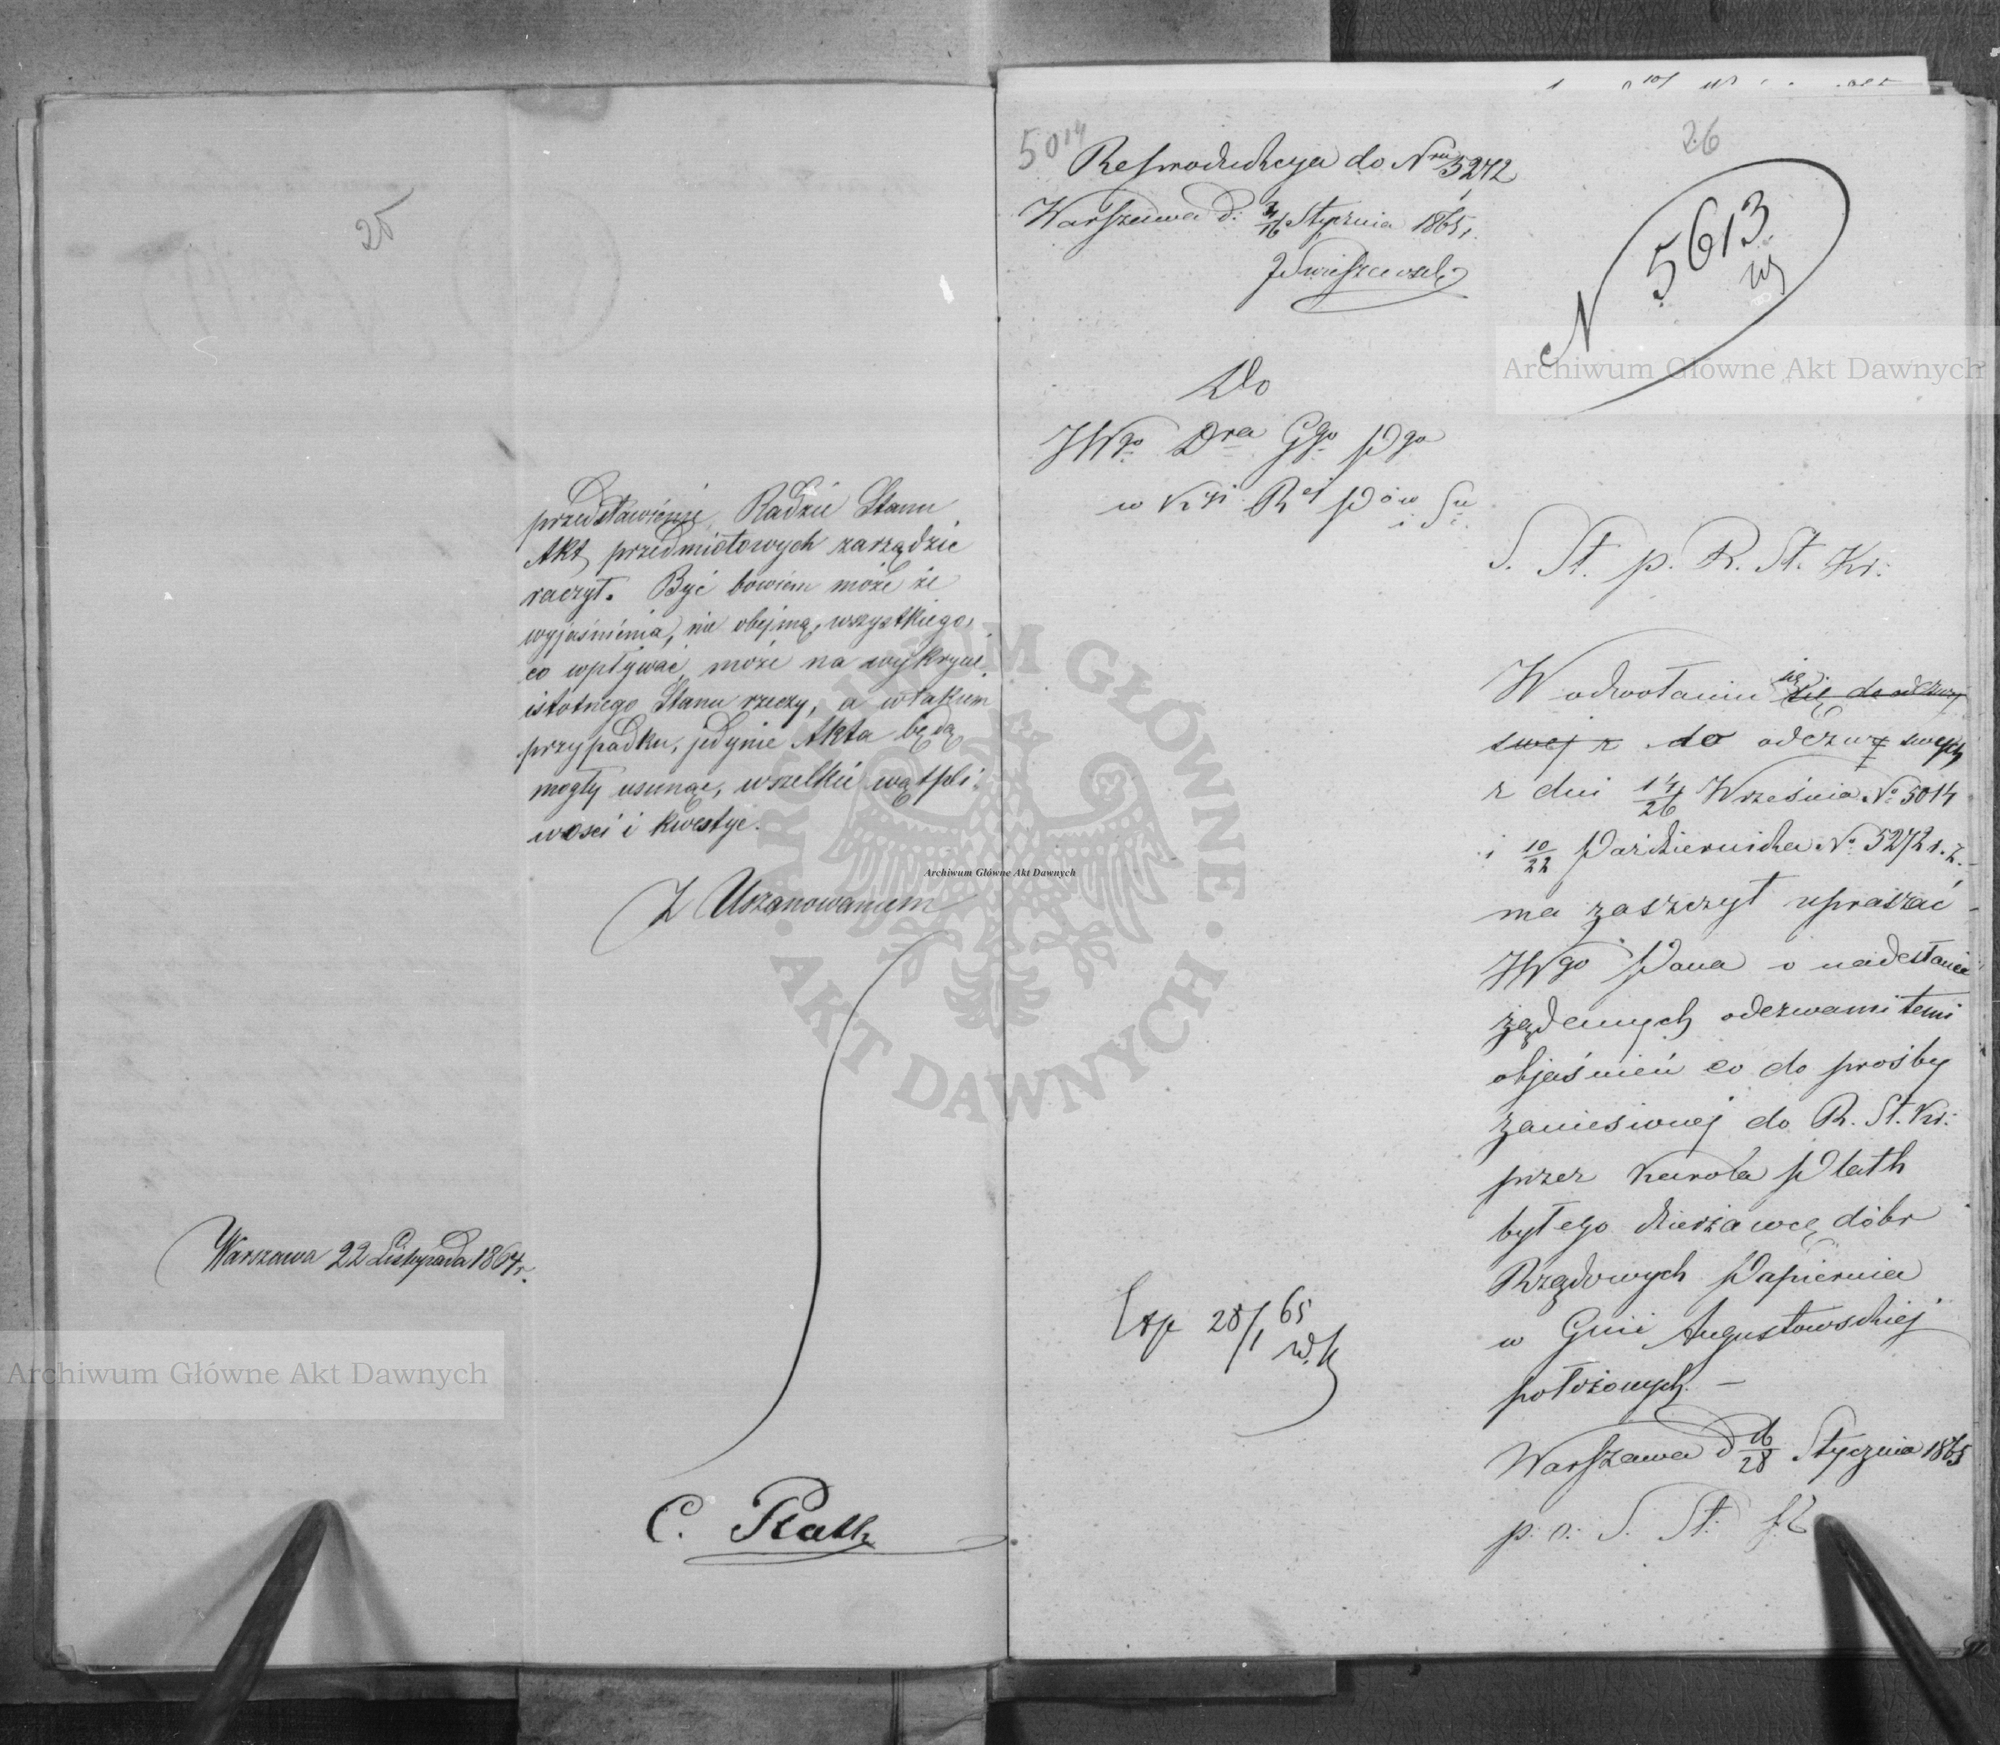 25
przedstawienie Radzie Stanu
Akt, przedmiotowych zarządzić
raczył. Być bowiem może że
wyjaśnienia, nie obejmą, wszystkiego,
co wpływać może na wykrycie
istotnego Stanu rzeczy, a w takim
przypadku, jedynie Akta będą
mogły usunąć, wszelkie wątpli:
wości i kwestye.
Z Uszanowaniem
Warszawa 22 Listopada 1864 r.
C. Plath
5014
26
Reprodukcya do Nru 5272
Warszawa d. 4/16 Stycznia 1865 r.
N 5613
Do
JWgo Dra Ggo Pgo
w Kyi Rej Pów i Su
S. St. p. R. St. Kr:
W odwołaniu się się do odezwy
swej z do odezw swych
z dni 14/26 Września No 5014
i 10/22 Października No 5272 r. z. -
ma zaszczyt upraszać
JWgo Pana o nadesłanie
żądanych odezwami temi
objaśnień co do prośby
zaniesionej do R. St. Kr:
przez Karola Plath
byłego dzierżawcę dóbr
Rządowych Papiernia
w Gnii Augustowskiej
położonych. —
Warszawa d 16/28 Stycznia 1865
p. o. S. St.
Exp 28/1 65
Archiwum Główne Akt Dawnych
Archiwum Główne Akt Dawnych
Archiwum Główne Akt Dawnych
ARCHIWUM GŁÓWNE · AKT DAWNYCH ·